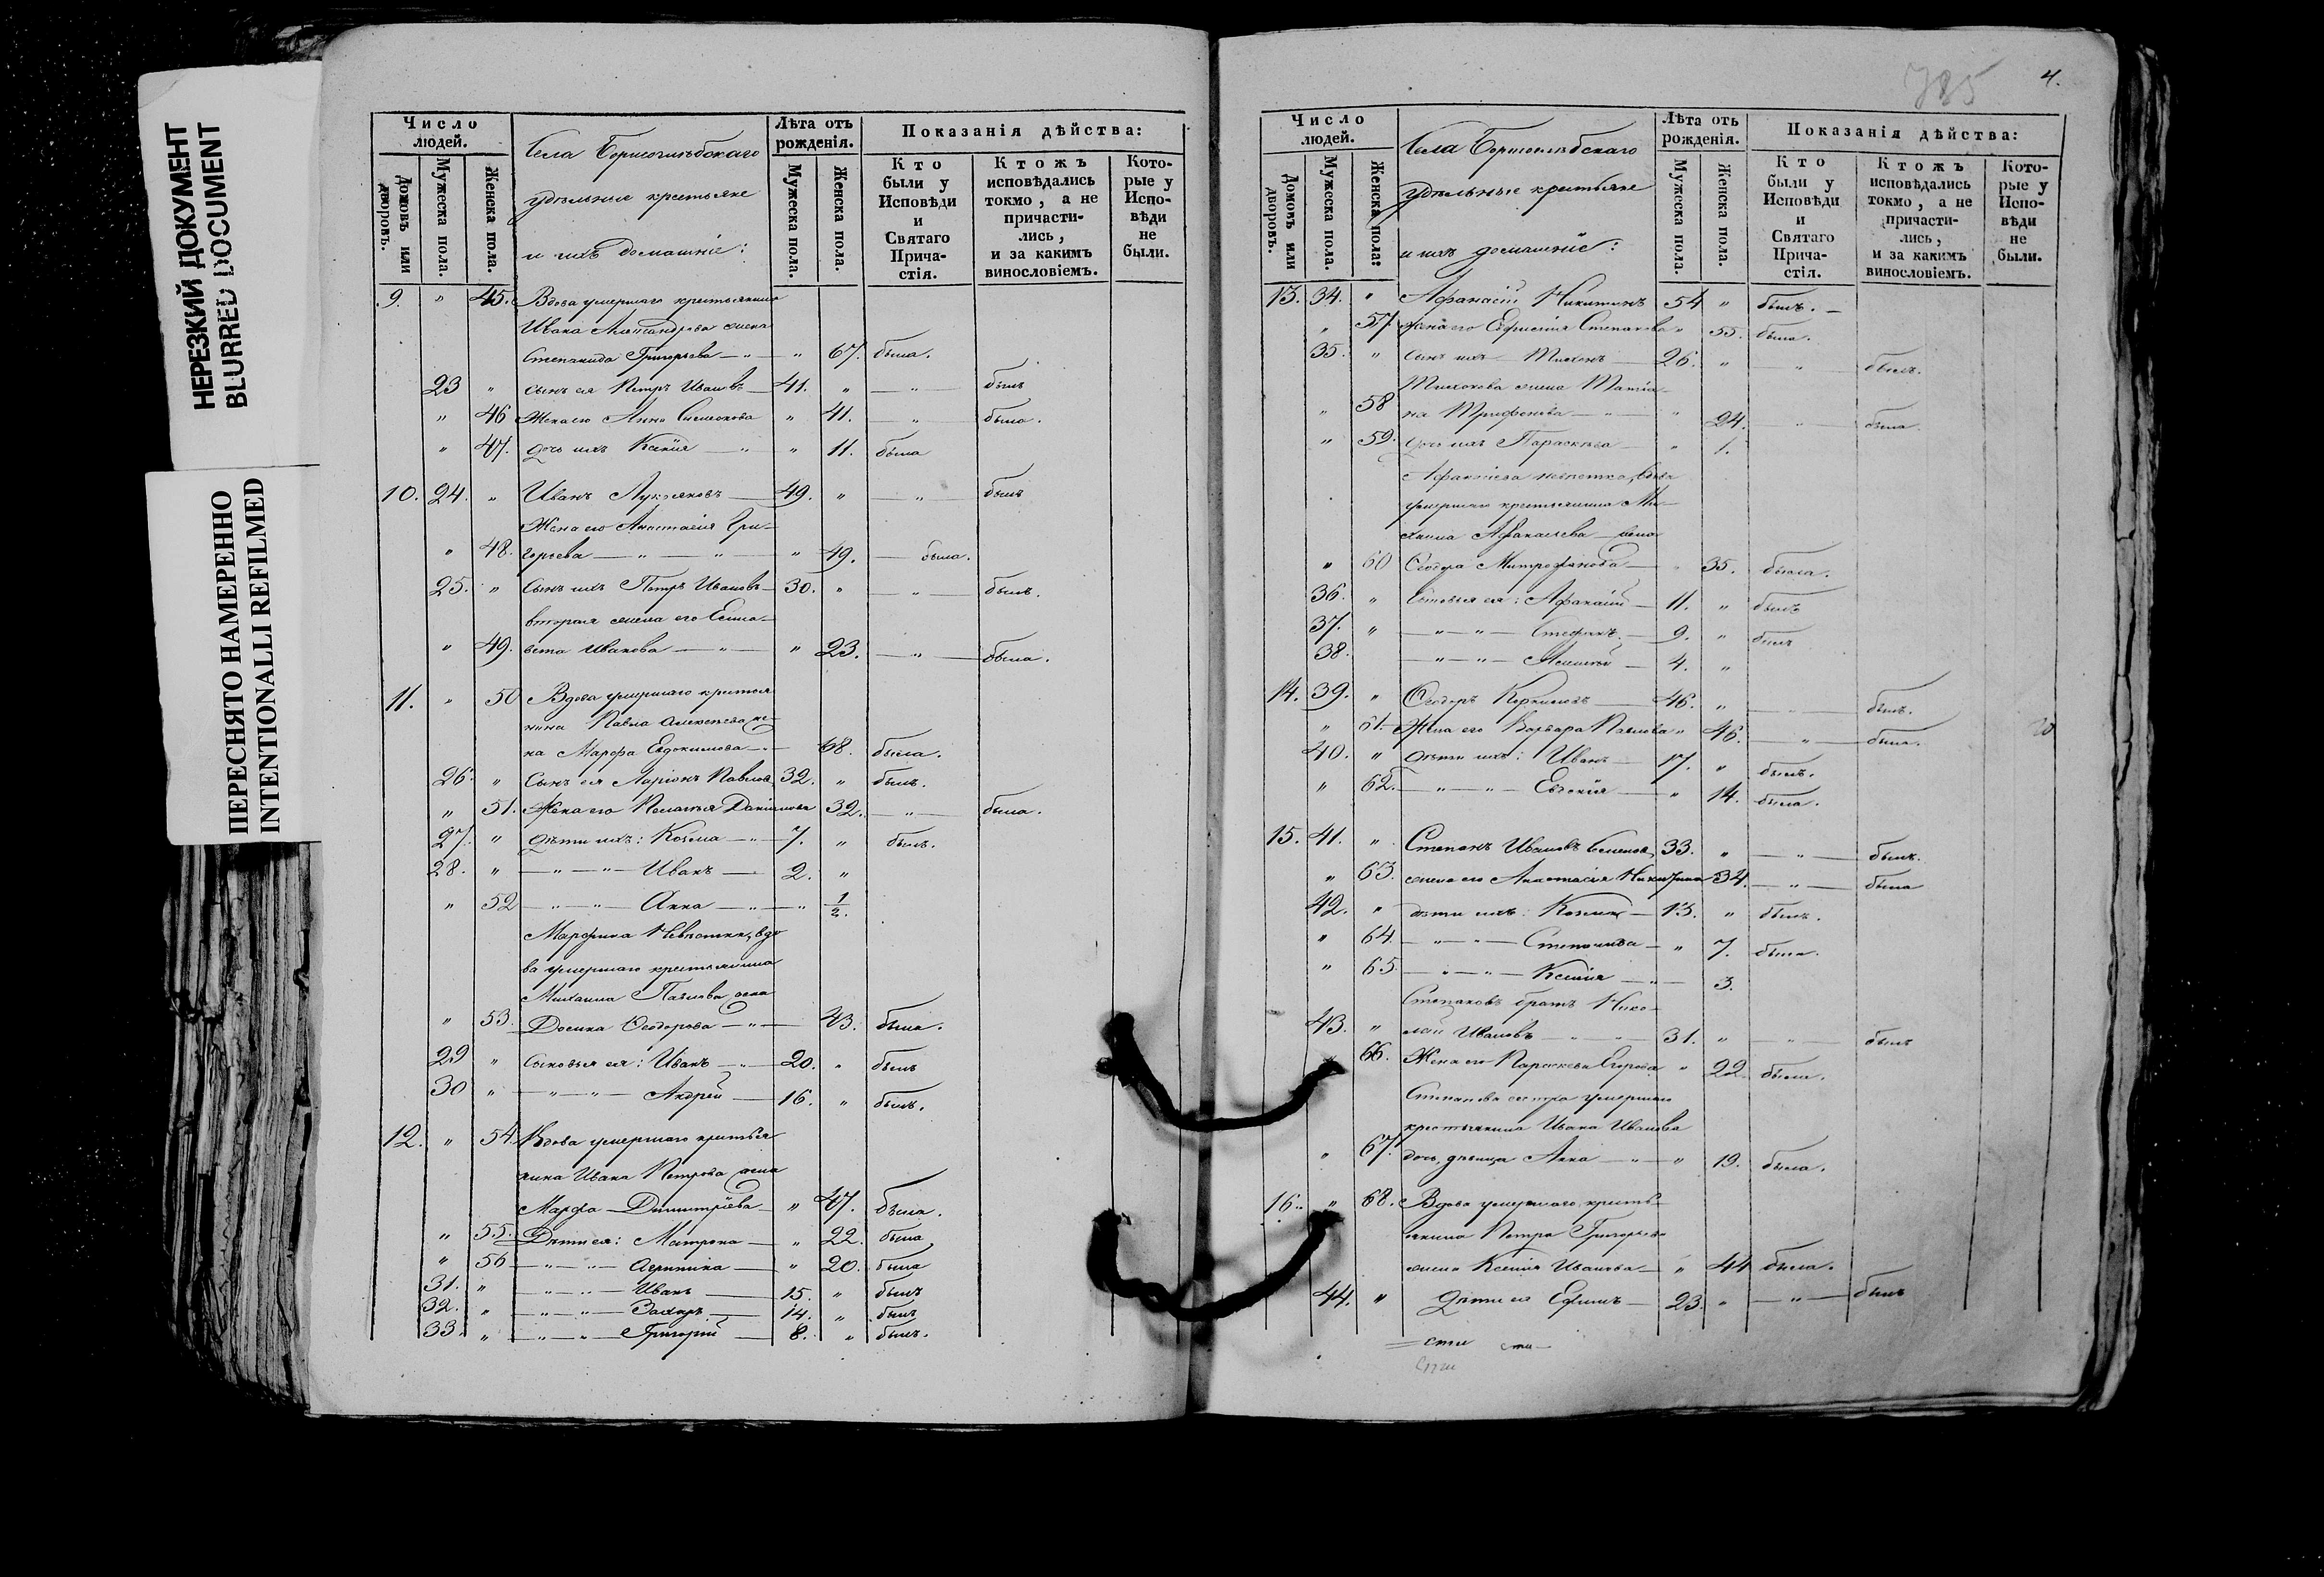 НЕРЕЗКИЙ ДОКУМЕНТ
BLURRED DOCUMENT
ПЕРЕСНЯТО НАМЕРЕННО
INTENTIONALLI REFILMED
Число людей.
Домовъ или дворовъ.
Мужеска пола.
Женска пола.
Села Борисоглѣбскаго
удѣльные крестьяне
и ихъ домашніе:
Лѣта отъ рожденія.
Мужеска пола.
Женска пола.
Показанія дѣйства:
Кто были у Исповѣди и Святаго Прича-стія.
Ктожъ исповѣдались токмо, а не причасти-лись, и за какимъ винословіемъ.
Кото-рые у Испо-вѣди не были.
9. " 45. Вдова умершаго крестьянина
Ивана жена
Степанида Григорьева — " — " 67. была.
23 " сынъ ея Петръ Ивановъ — 41. " — " — былъ
" 46 Жена его Анна Симеонова " 41. — " — была.
" 47. дочь ихъ Ксенія — " — " 11. была
10. 24. " Иванъ — 49. " — " — былъ
Жена его Анастасія Гри-
" 48. горьева — " — " — " 49. — была.
25. " Сынъ ихъ Петръ Ивановъ — 30. " — " — былъ.
вторая жена его Елиса-
" 49. вета Иванова — " — " 23. — " — была.
11. " 50 Вдова умершаго крестья
нина Павла Алексѣева же-
на Марфа Евдокимова — " — 68. была.
26. " Сынъ ея Ларіонъ Павлов 32. " былъ.
" 51. Жена его Пелагья Даніилова 32. — " — была.
27. " дѣти ихъ: Козма — " — 7. " былъ.
28. " — " — " — Иванъ — 2. "
" 52 — " — " — Анна — " — " 1/2.
Марфина Невѣстка, вдо
ва умершаго крестьянина
Михаила Павлова жена
" 53. Ѳеодорова — " — 43. была.
29 " сыновья ея: Иванъ — " — 20. " былъ
30 " — " — " — Андрей — 16. " былъ.
12. " 54. Вдова умершаго крестья
нина Ивана Петрова жена
Марфа Димитріева — " 47. была.
" 55. Дѣти ея: Матрона — " 22. была
" 56 — " — " — Агрипина — " 20. была
31. " — " — " — Иванъ — 15. " былъ
32. " — " — " — Захаръ — 14. " былъ
33. " — " — " — Григорій — 8. " былъ.
785
4.
Число людей.
Домовъ или дворовъ.
Мужеска пола.
Женска пола:
Села Борисоглѣбскаго
удѣльные крестьяне
и ихъ домашніе:
Лѣта отъ рожденія.
Мужеска пола.
Женска пола.
Показанія дѣйства:
Кто были у Исповѣди и Святаго Прича-стія.
Ктожъ исповѣдались токмо, а не причасти-лись, и за какимъ винословіемъ.
Кото-рые у Испо-вѣди не были.
13. 34. " Афанасій Никитинъ 54 " былъ. —
" 57. жена его Степанова " 55. была.
35. " сынъ ихъ Тихонъ — 26. " — " — былъ.
Тихонова жена Татіа-
" 58 на Трифонова — " — " 24. — " — была.
" 59. дочь ихъ Параскева — " 1.
невѣстка, вдова
умершаго крестьянина Ми-
хаила Афанасьева жена
" 60 Ѳеодора Митрофанова — " 35. была.
36. " Сыновья ея: Афанасій — 11. " былъ
37. " — " — " — Стефанъ — 9. " былъ
38. — " — " — Алексѣй — 4. "
14. 39. " Ѳеодоръ — 46. " — " — былъ.
" 61. Жена его Варвара Павлова " 46. — " — была.
40. " дѣти ихъ: Иванъ — 17. " былъ.
" 62. — " — " — Евгенія — " 14. была.
20
15. 41. " Степанъ Ивановъ 33. " — " — былъ.
" 63. жена его Анастасія Никитина 34. — " — была
42. " дѣти ихъ: Козма — 13. " былъ.
" 64. — " — " — Степанида — " 7. была.
" 65. — " — " — Ксенія — " — 3.
Степановъ братъ Нико-
43. " лай Ивановъ — " — " 31. " — " — былъ
66. Жена его Параскева Егорова " 22. была.
Степанова сестра умершаго
крестьянина Ивана Иванова
" 67. дочь, дѣвица Анна — " — " 19. была.
16. " 68. Вдова умершаго кресть-
янина Петра Григорьева
жена Ксенія Иванова — " 44 была.
44. " Дѣти ея Ефимъ — 23. " — " — былъ